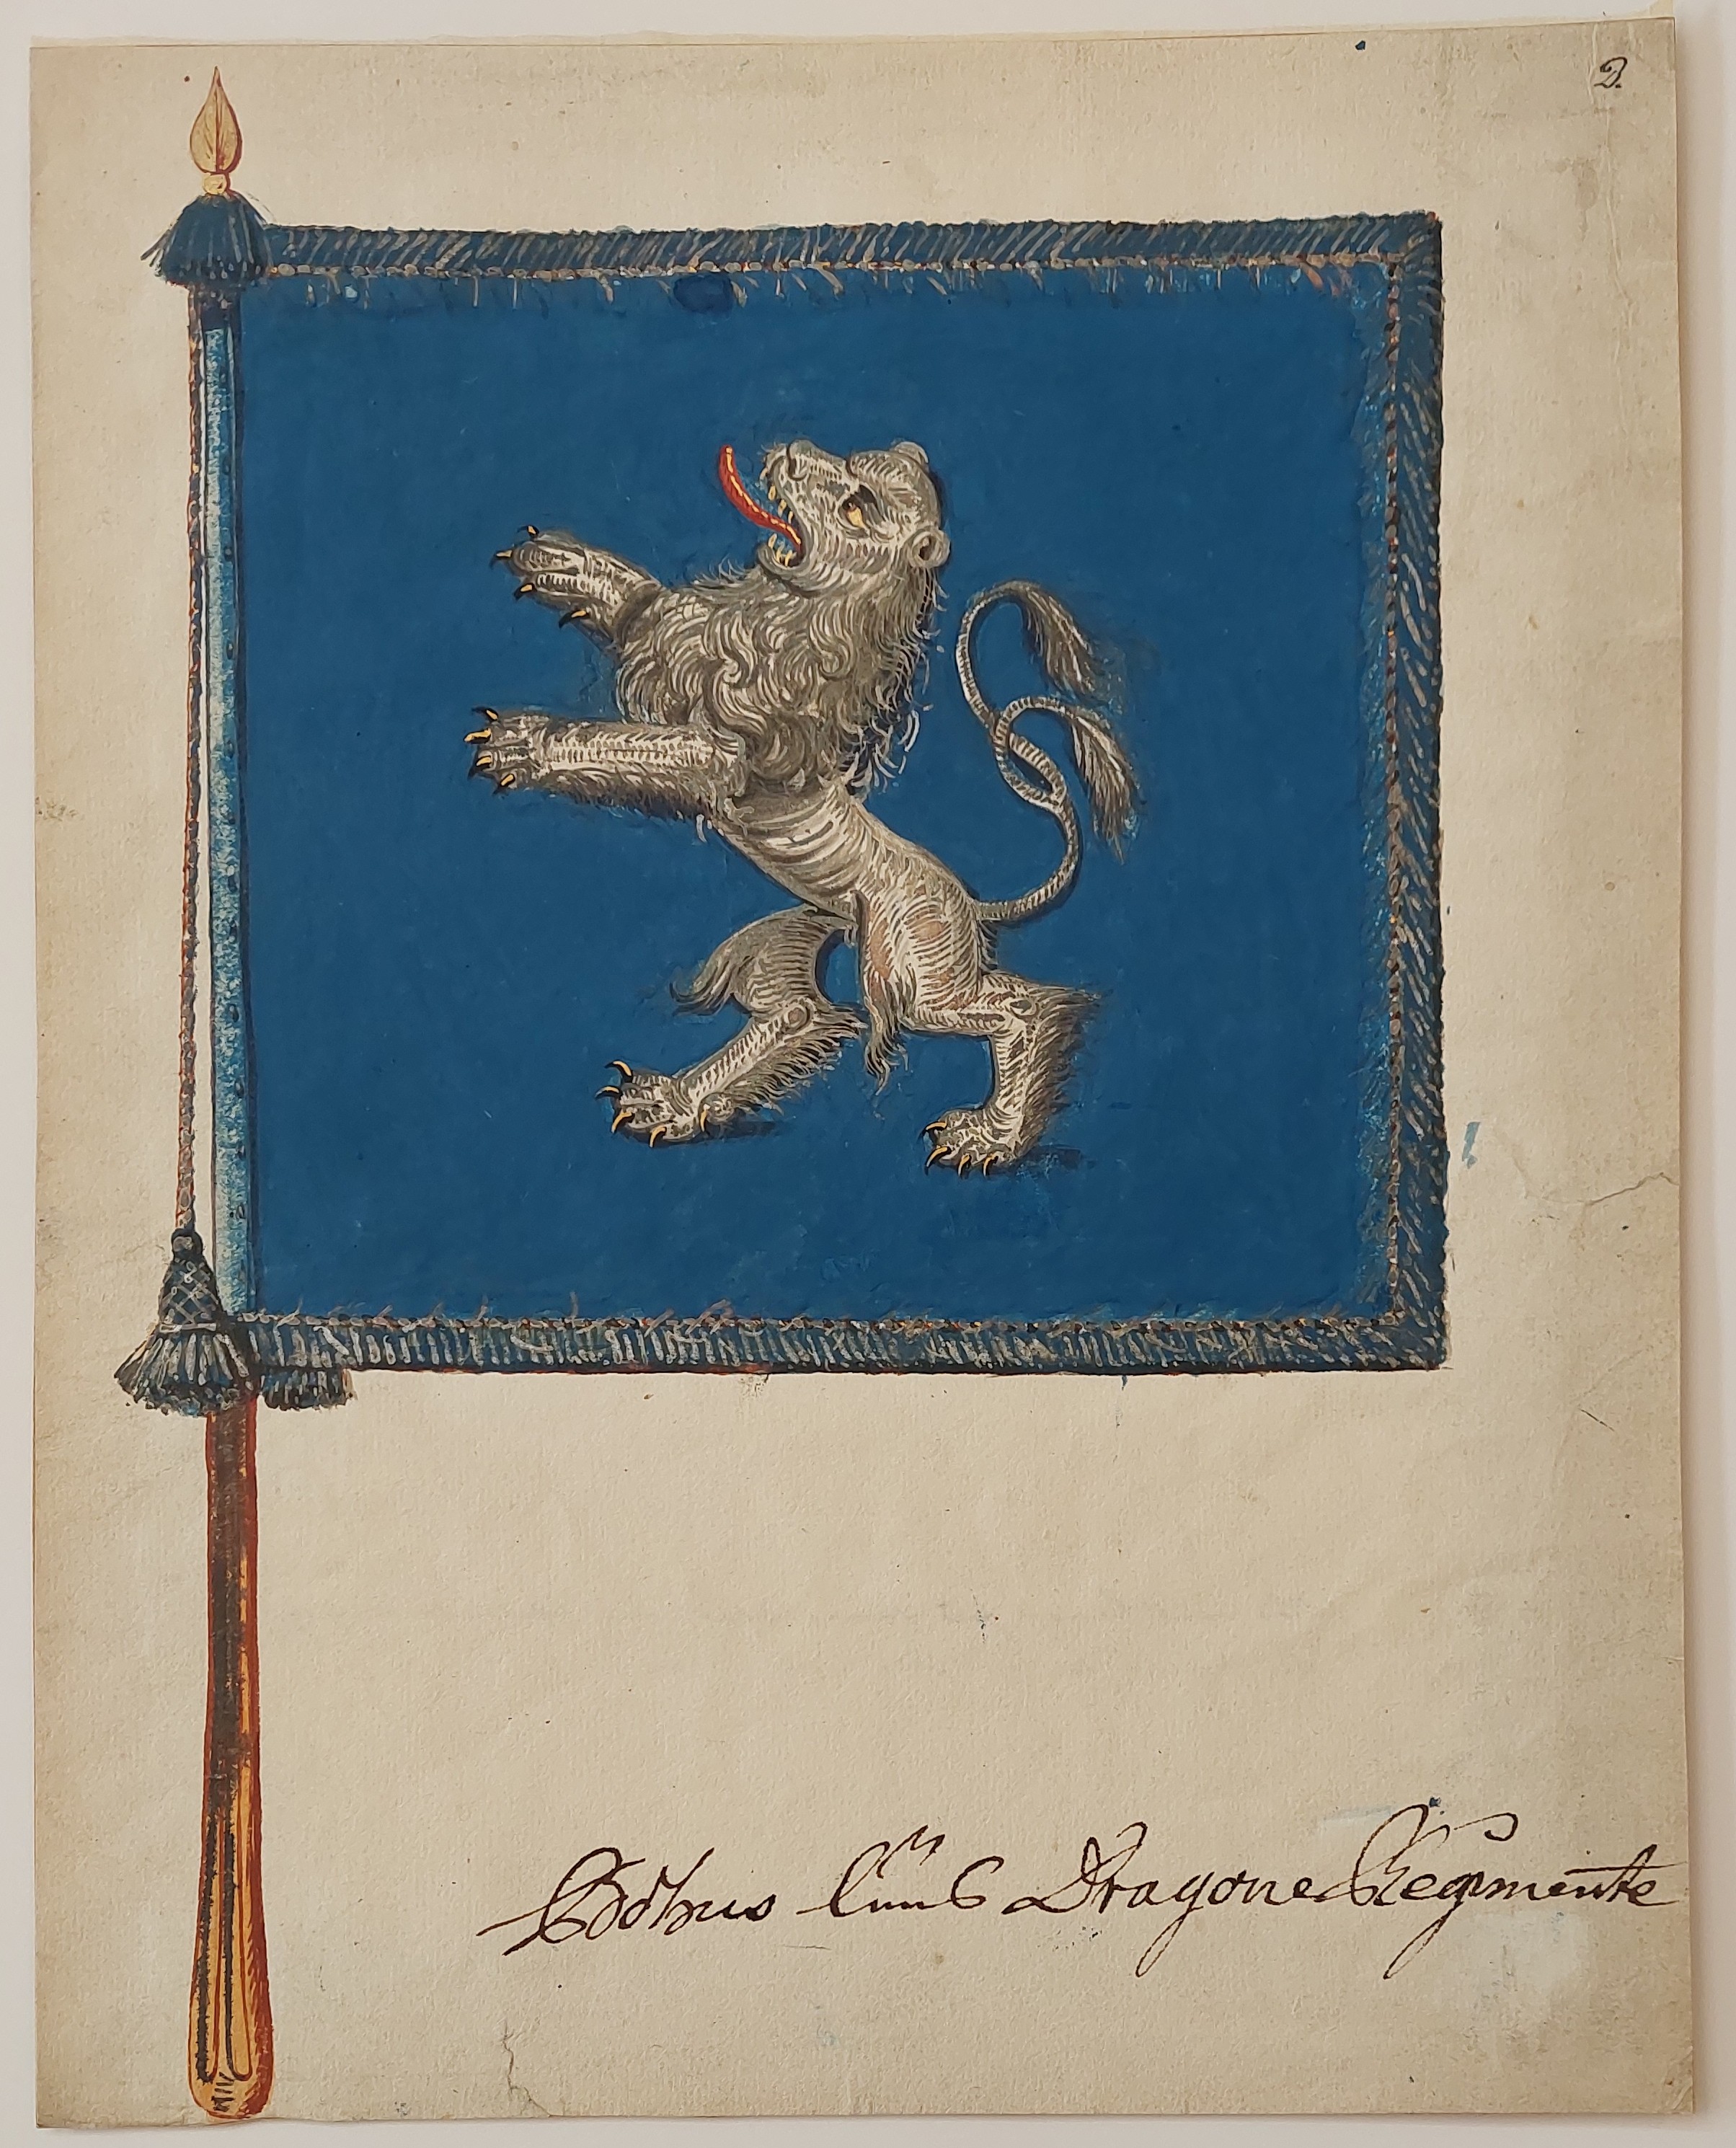 2.
Bohus Lüns Dragone Regimente